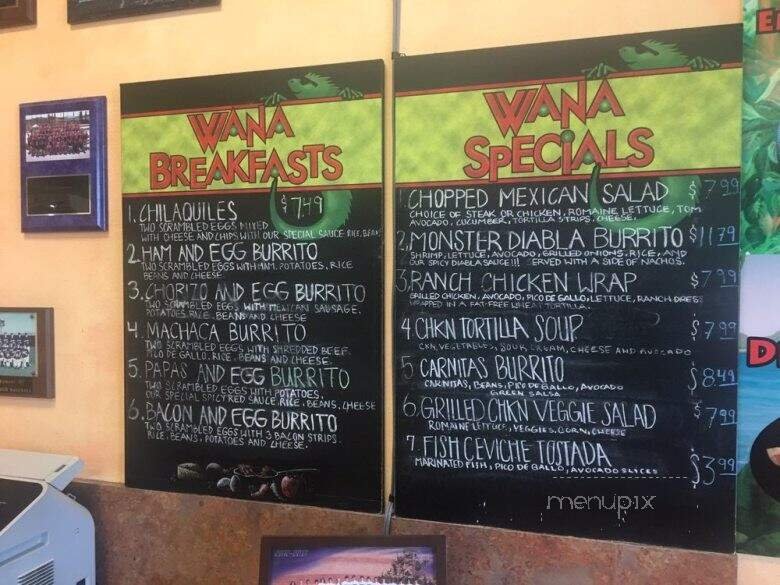 WANA
BREAKFASTS
1. CHILAQUILES $7.49
TWO SCRAMBLED EGGS MIXED
WITH CHEESE AND CHIPS WITH OUR SPECIAL SAUCE, RICE, BEANS
2. HAM AND EGG BURRITO
TWO SCRAMBLED EGGS WITH HAM, POTATOES, RICE
BEANS AND CHEESE
3. CHORIZO AND EGG BURRITO
TWO SCRAMBLED EGGS WITH MEXICAN SAUSAGE,
POTATOES, RICE, BEANS AND CHEESE
4. MACHACA BURRITO
TWO SCRAMBLED EGGS WITH SHREDDED BEEF
PICO DE GALLO, RICE, BEANS AND CHEESE.
5. PAPAS AND EGG BURRITO
TWO SCRAMBLED EGGS WITH POTATOES,
OUR SPECIAL SPICY RED SAUCE, RICE, BEANS, CHEESE
6. BACON AND EGG BURRITO
TWO SCRAMBLED EGGS WITH 3 BACON STRIPS.
RICE, BEANS, POTATOES AND CHEESE.
WANA
SPECIALS
1. CHOPPED MEXICAN SALAD $7.99
CHOICE OF STEAK OR CHICKEN, ROMAINE LETTUCE, TOM
AVOCADO, CUCUMBER, TORTILLA STRIPS, CHEESE.
2. MONSTER DIABLA BURRITO $11.79
SHRIMP, LETTUCE, AVOCADO, GRILLED ONIONS, RICE, AND
OUR SPICY DIABLA SAUCE!!! SERVED WITH A SIDE OF NACHOS.
3. RANCH CHICKEN WRAP $7.99
GRILLED CHICKEN, AVOCADO, PICO DE GALLO, LETTUCE, RANCH DRESS
WRAPPED IN A FAT-FREE WHEAT TORTILLA.
4 CHKN TORTILLA SOUP $7.99
CKN, VEGETABLES, SOUR CREAM, CHEESE AND AVOCADO
5 CARNITAS BURRITO $8.49
CARNITAS, BEANS, PICO DE GALLO, AVOCADO
GREEN SALSA
6. GRILLED CHKN VEGGIE SALAD $7.99
ROMAINE LETTUCE, VEGGIES, CORN, CHEESE
7. FISH CEVICHE TOSTADA $3.99
MARINATED FISH, PICO DE GALLO, AVOCADO SLICES
menupix